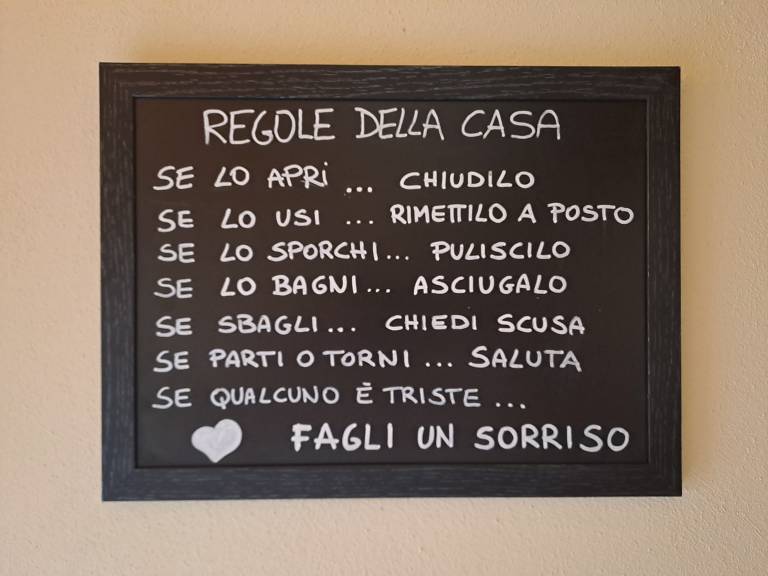 REGOLE DELLA CASA
SE LO APRi ... CHIUDILO
SE LO USI ... RIMETTILO A POSTO
SE LO SPORCHI... PULISCILO
SE LO BAGNI... ASCIUGALO
SE SBAGLI... CHIEDI SCUSA
SE PARTI O TORNI ... SALUTA
SE QUALCUNO È TRISTE ...
FAGLI UN SORRISO